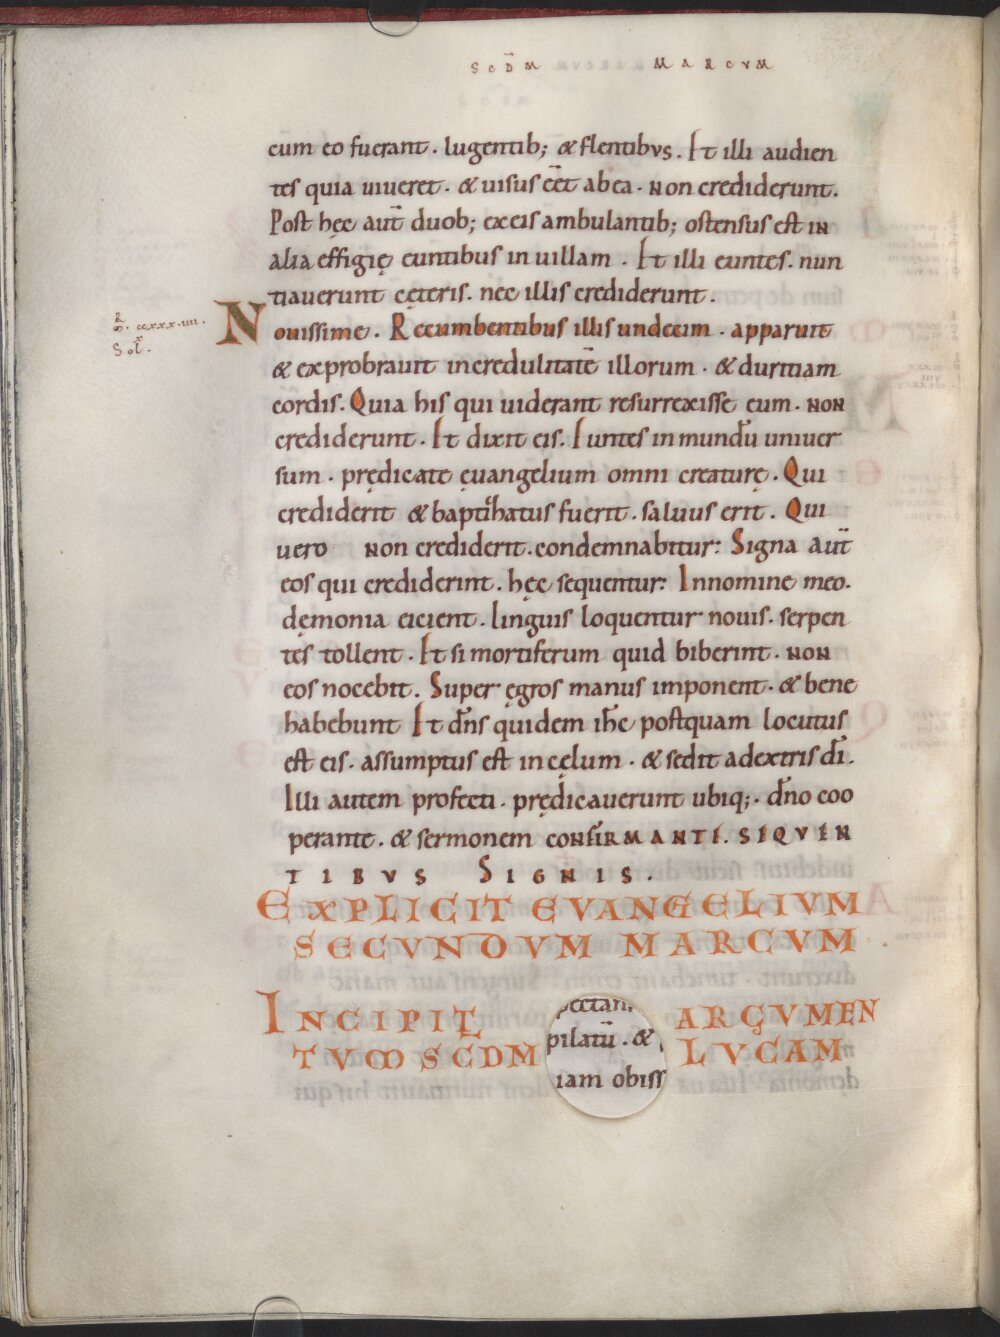 SCD̄M MARCVM
cum eo fuerant. lugentib; & flentibvs. Et illi audien
tes quia uiueret. & uisus eēt ab ea. non crediderunt.
Post hęc aut̄ duob; ex eis ambulantib; ostensus est in
alia effigię euntibus in uillam. Et illi euntes. nun
tiauerunt cęteris. nec illis crediderunt.
ccxxx.iiii.
Nouissime. Recumbentibus illis undecim. apparuit
& exprobrauit incredulitatē illorum. & duritiam
cordis. Quia his qui uiderant resurrexisse eum. non
crediderunt. Et dixit eis. Euntes in mundū uniuer
sum. prędicate ęuangelium omni creaturę. Qui
crediderit & baptihatus fuerit. saluus erit. Qui
uero non crediderit. condemnabitur: Signa aut̄
eos qui crediderint. hęc sequentur: In nomine meo.
dęmonia eicient. linguis loquentur nouis. serpen
tes tollent. Et si mortiferum quid biberint. non
eos nocebit. Super ęgros manus imponent. & bene
habebunt Et dn̄s quidem ih̄c postquam locutus
est eis. assumptus est in cęlum. & sedit a dextris dī.
Illi autem profecti. prędicauerunt ubiq;. dn̄o coo
perante. & sermonem confirMANTE. SEQVEN
TIBVS SIGNIS.
EXPLICIT EVANGELIVM
SECVNDVM MARCVM
INCIPIT ARGVMEN
pilatū. &
TVM SCDM LVCAM
iam obiss